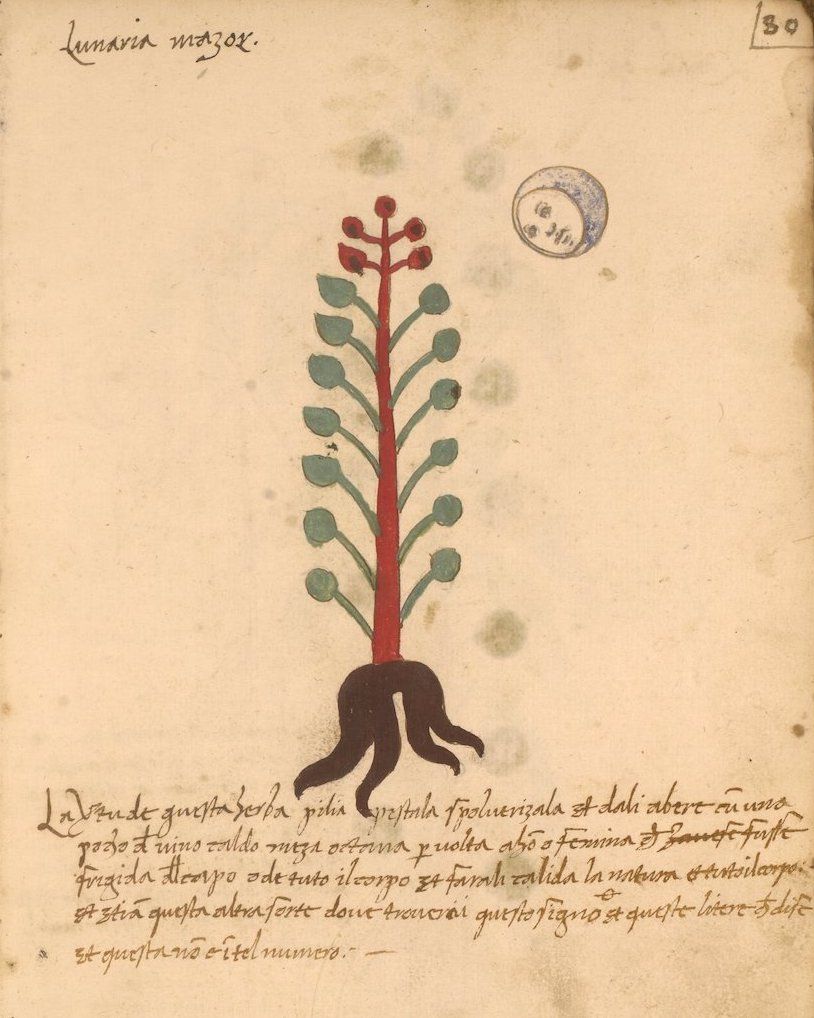 Lunaria mazor.
80
La Vtu de questa herba pilia pestala spolverizala et dali abere cũ uno
pocho vino caldo meza octava p volta a hõ o femina fusse
frigida capo o de tuto il corpo et farali calida la natura e tuto il corpo:
et etiã questa altra sorte dove troverai questo signo et queste litere dise
et questa nõ e ĩ tel numero.